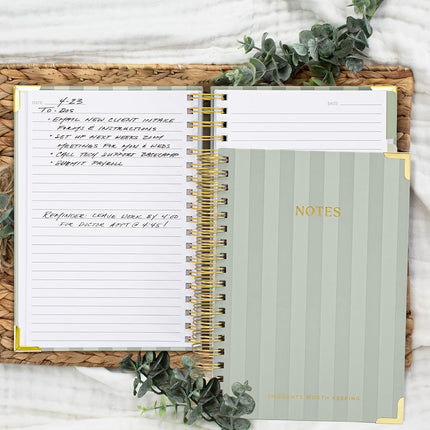 DATE 4-23
TO-DOS
• EMAIL NEW CLIENT INTAKE
FORMS & INSTRUCTIONS
• SET UP NEXT WEEKS ZOOM
MEETINGS FOR MON & WEDS
• CALL TECH SUPPORT
• SUBMIT PAYROLL
REMINDER: LEAVE WORK BY 4:00
FOR DOCTOR APPT @ 4:45!
DATE
NOTES
THOUGHTS WORTH KEEPING